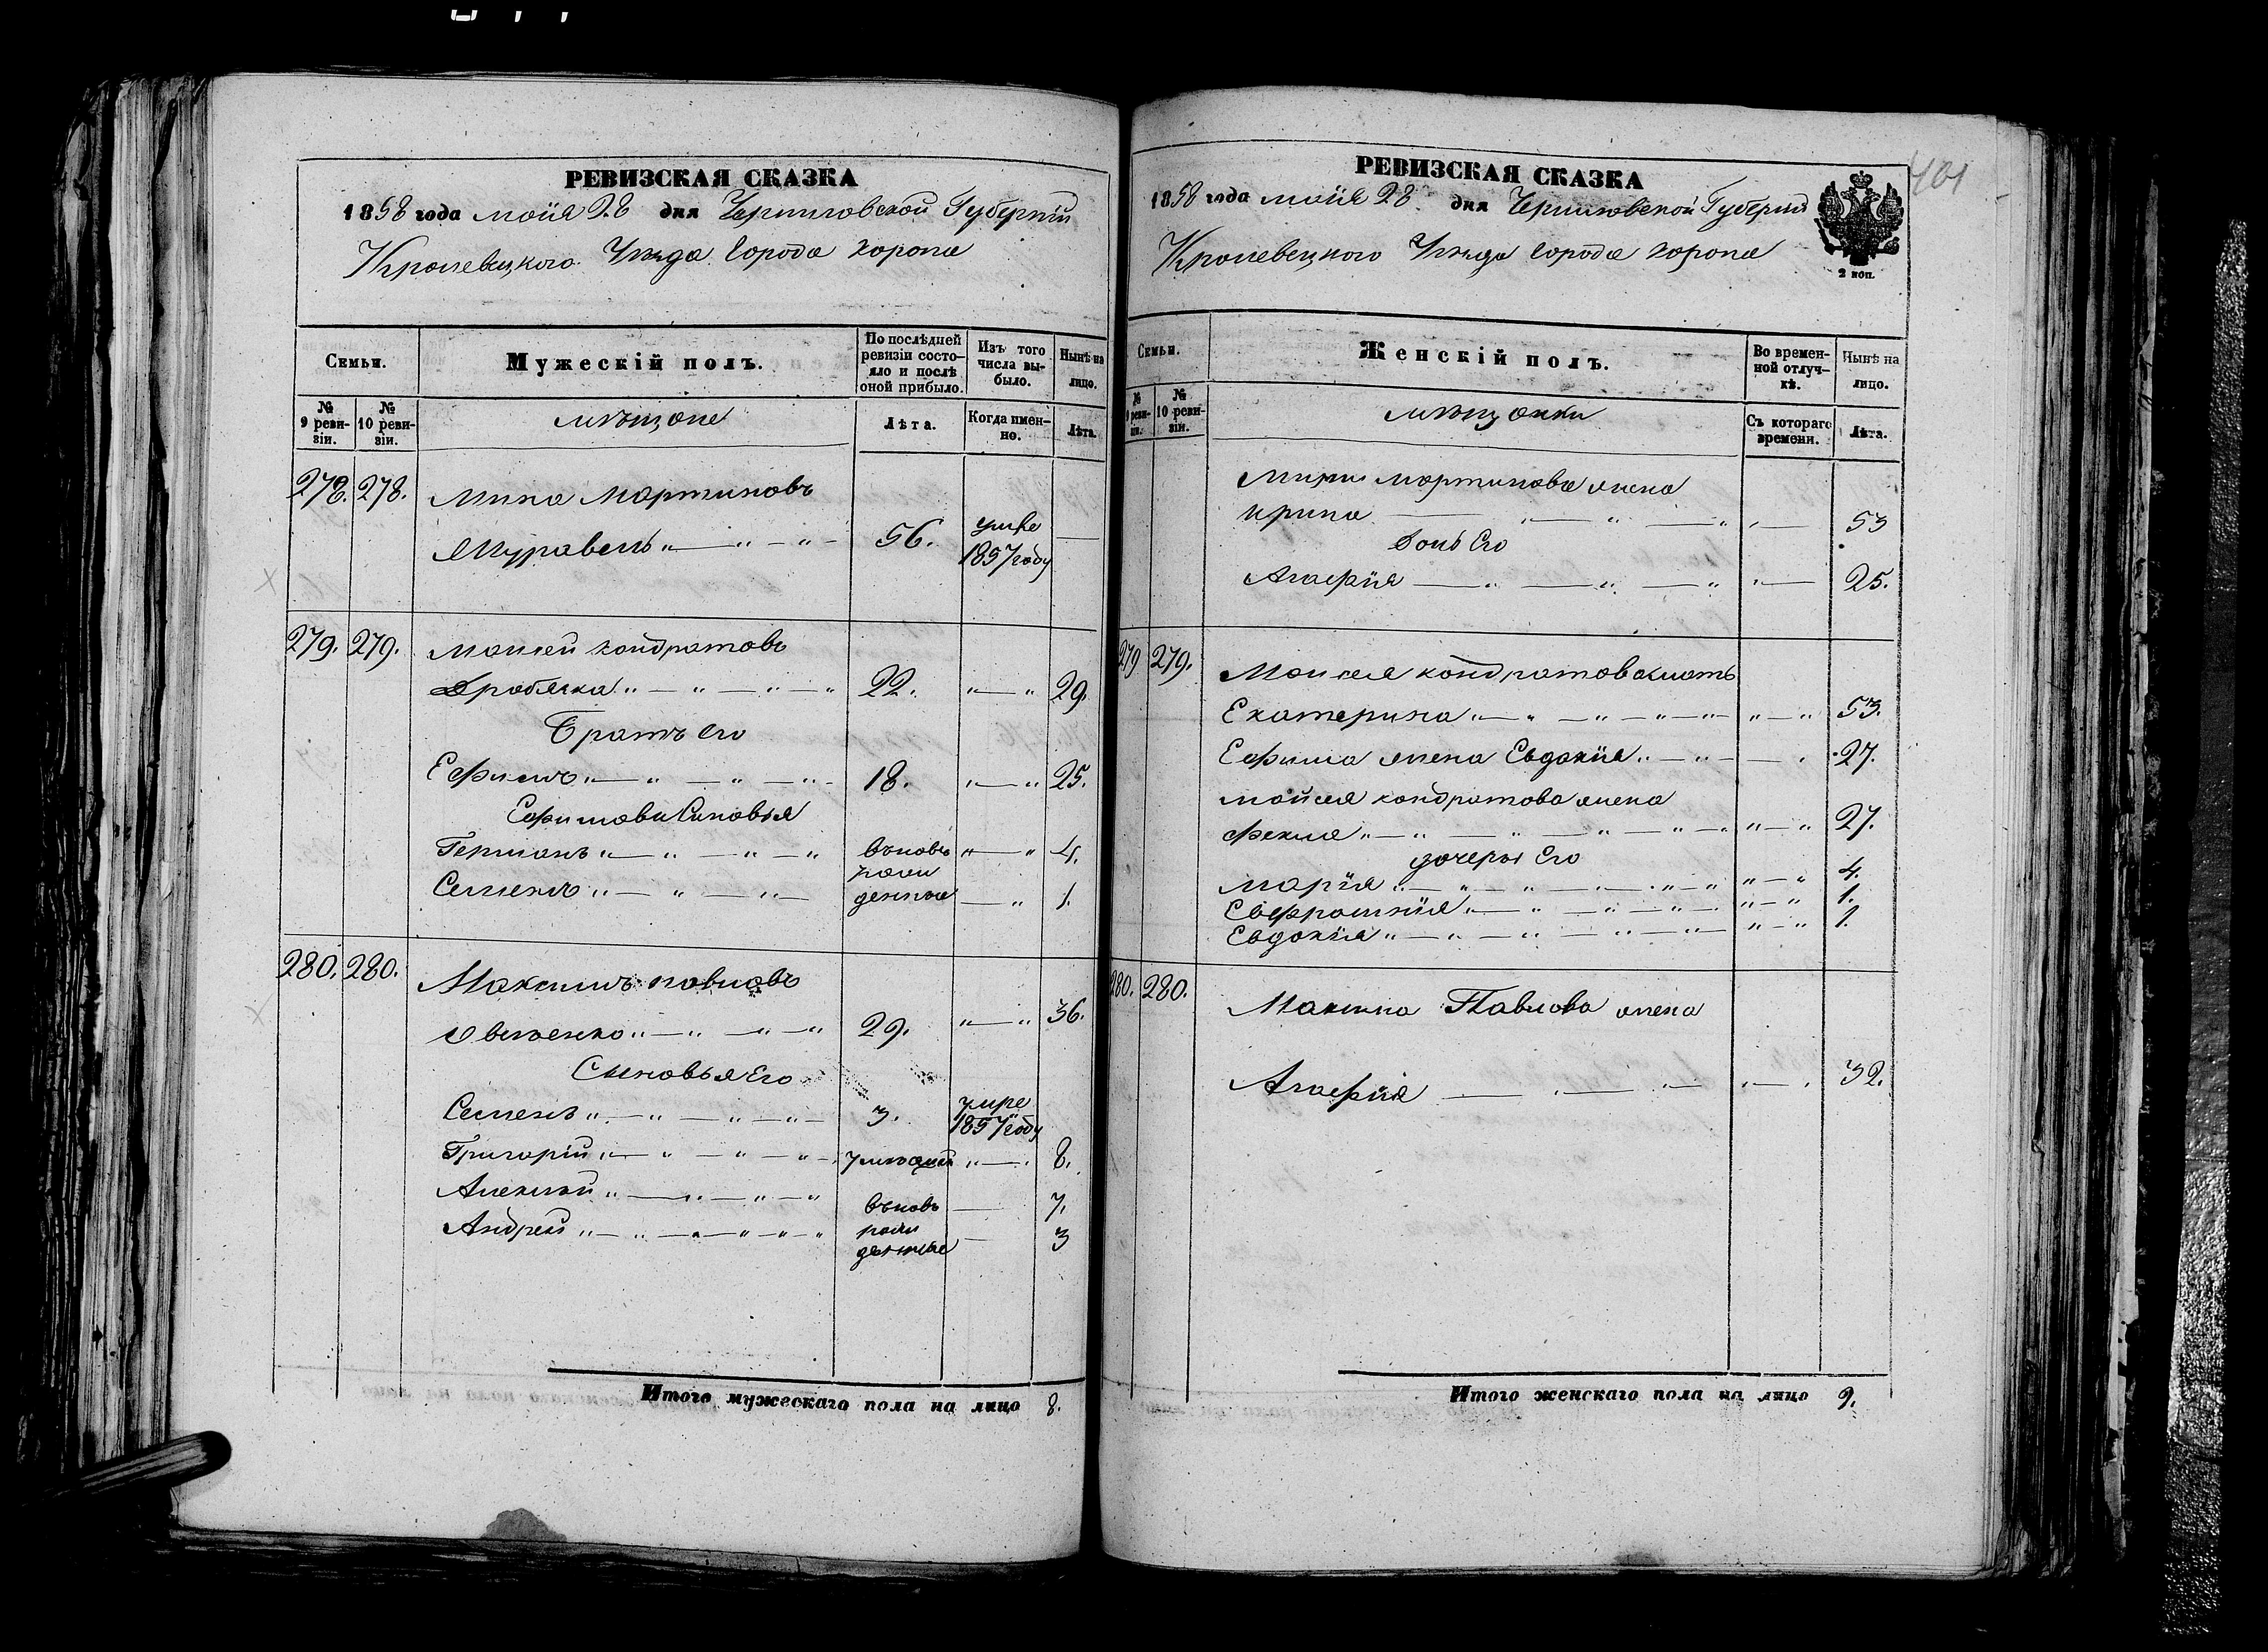 РЕВИЗСКАЯ СКАЗКА
1858 года мойя 28 дня Черниговской Губерніи
Кролевецкого Уѣзда Города Коропа
Семьи.
Мужескій полъ.
По послѣдней ревизіи состояло и послѣ оной прибыло.
Изъ того числа выбыло.
Нынѣ на лицо.
№ 9 ревизіи.
№ 10 ревизіи.
мѣщане
Лѣта.
Когда именно.
Лѣта.
278. 278. Мина Мартиновъ
Журавель 56. умре 1857 году
279. 279. Моисей Кондратовъ
Дробязка 22. 29.
Братъ Его
Ефимъ 18. 25.
Ефимови Синовья
Германъ въновь 4.
рожи
Семенъ денные 1.
280. 280. Максимъ Павловъ
29. 36.
Сыновья Его
Семенъ 3. умре 1857 году
Григорій 8.
Алексѣй въновь 7.
рожи
Андрей денные 3
Итого мужескаго пола на лицо 8.
РЕВИЗСКАЯ СКАЗКА
401
1858 года мойя 28 дня Черниговской Губерніи
Кролевецкого Уѣзда Города Коропа
2 коп.
Семьи.
Женскій полъ.
Во временной отлучкѣ.
Нынѣ на лицо.
№ 9 ревизіи.
№ 10 ревизіи.
мѣщанки
Съ котораго времени.
Лѣта.
Мини Мартинова жена
Ирина 53
Дочь Его
Агафія 25.
279 279. Моисея Кондратова мать
Екатерина 53.
Ефима жена Евдокія 27.
Мойсея Кондратова жена
Фекла 27.
дочеры Его
Марія 4.
Евфросинія 1.
Евдокія 1.
280. 280. Максима Павлова жена
Агафія 32.
Итого женскаго пола на лицо 9.